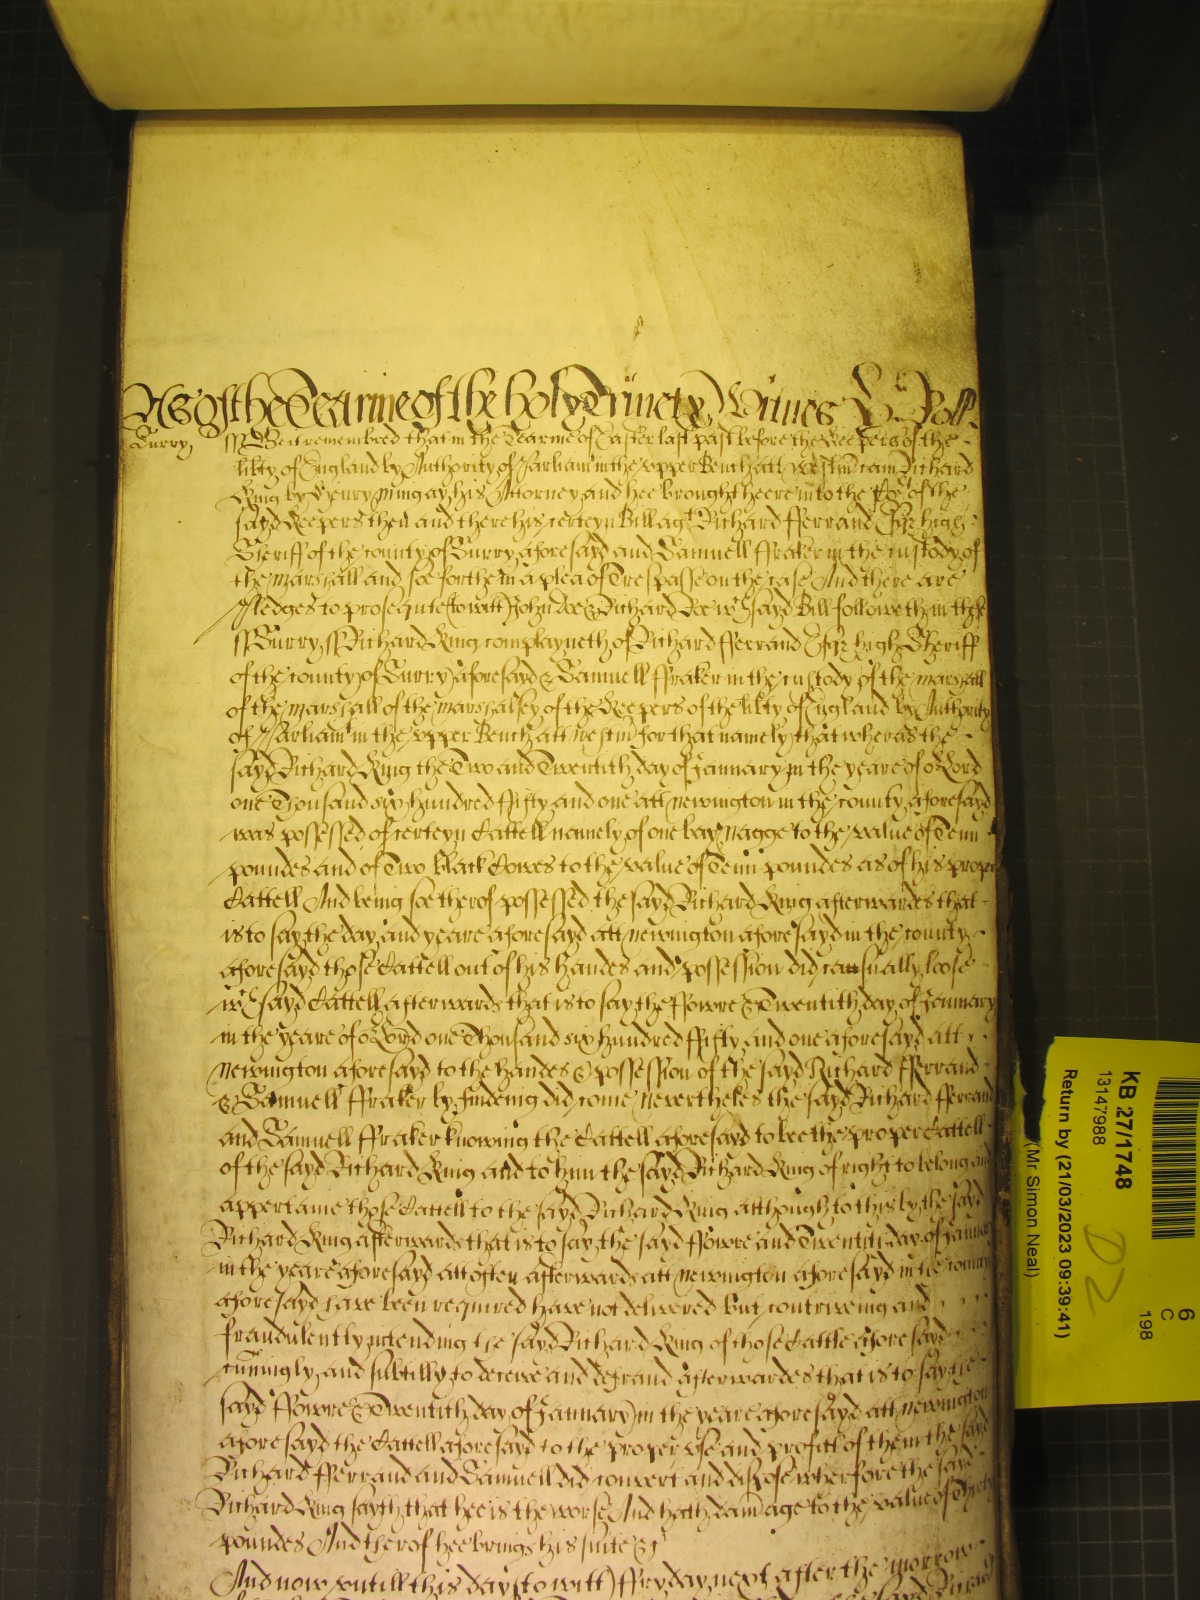 As yet of the Tearme of the holy Trinety Witnes Roll
Surry ss Be it remembred that in the Tearme of Easter last past before the Keepers of the
libty of England by Authority of Parliamt in the upper Bench att Westmr came Richard
King by Henry Mingay his Attorney and hee brought heere into the Cort of the
sayd Keepers then and there his certeyn Bill agt Richard Fferrand Esqr high
Sheriff of the county of Surry aforesayd and Samuell Ffraker in the custody of
the Marshall and soe forthe in a plea of Trespasse on the case And there are
Pledges to prosequute (to witt) John Doe & Richard Roe wch sayd Bill followeth in thes
ss Surry ss Richard King complayneth of Richard Fferrand Esqr high Sheriff
of the county of Surry aforesayd & Samuell Ffraker in the custody of the marshall
of the marshall of the marshalsey of the Keepers of the libty of England by Authority
of Parliamt in the upper Bench att Westmr for that namely that whereas the
sayd Richard King the Two and Twentith day of January in the yeare of or Lord
one Thousand six hundred ffifty and one att Newington in the county aforesayd
was possessed of certeyn Cattell namely of one bay nagge to the value of Tenn
poundes and of Two black Cowes to the value of Tenn poundes as of his proper
Cattell And being soe therof possessed the sayd Richard King afterwardes that
is to say the day and yeare aforesayd att Newington aforesayd in the county
aforesayd those Cattell out of his handes and possession did casually loose
wch sayd Cattell afterwards that is to say the Ffowre & Twentith day of January
in the yeare of or Lord one Thousand six hundred ffifty and one aforesayd att
Newington aforesayd to the handes & possession of the sayd Richard Fferrand
& Samuell Ffraker by findeing did come Nevertheles the sayd Richard Fferrand
and Samuell Ffraker knowing the Cattell aforesayd to bee the proper Cattell
of the sayd Richard King and to him the sayd Richard King of right to belong and
appertaine those Cattell to the sayd Richard King although to this by the sayd
Richard King afterwards that is to say the sayd ffowre and Twentith day of January
in the yeare aforesayd att often afterwards att Newington aforesayd in the county
aforesayd have been required have not delivered but contriveing and
fraudulently intending the sayd Richard King of those Cattle aforesayd
cuningly and subtilly to deceive and defraud afterwardes that is to say the
sayd Ffowre & Twentith day of January in the yeare aforesayd att Newington
aforesayd the Cattell aforesayd to the proper use and profitt of them the sayd
Richard Fferrand and Samuell did convert and dispose wherfore the sayd
Richard King sayth that hee is the worse And hath damage to the value of Thirty
poundes And therof hee brings his suite &c
And now untill this day (to witt) ffryday next after the morrow
KB 27/1748
13147988
Return by (21/03/2023 09:39:41)
(Mr Simon Neal)
D2
6
C
198